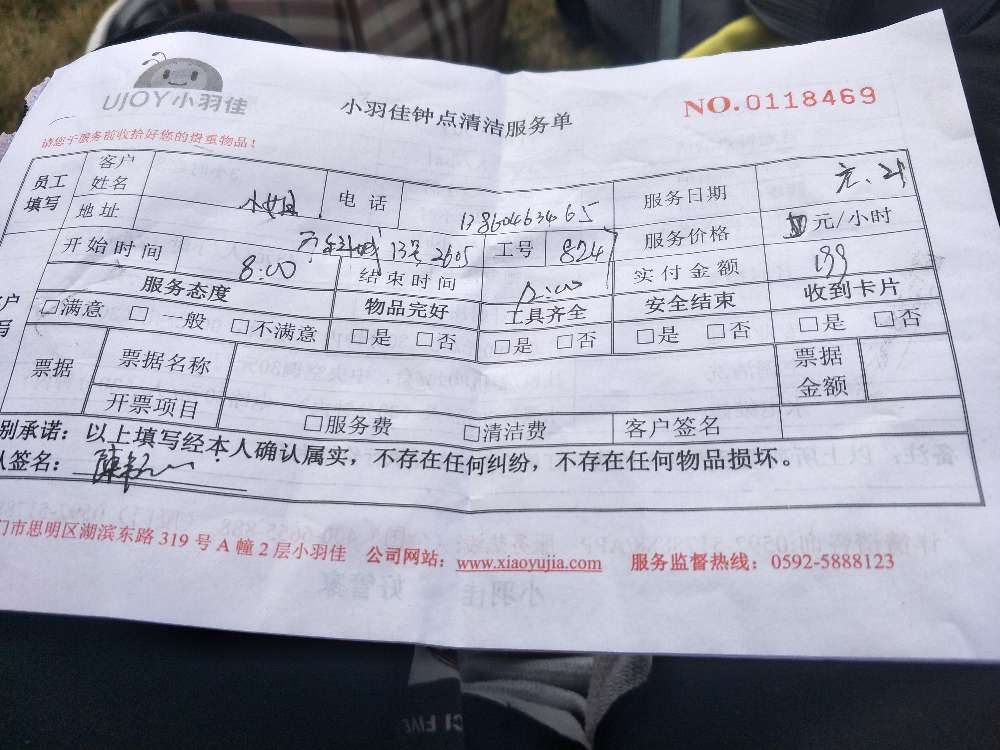 UJOY小羽佳
小羽佳钟点清洁服务单
NO.0118469
请您于服务前收拾好您的贵重物品！
员工填写
客户姓名
小姐
电话
13860463465
服务日期
地址
13号2605
工号
824
服务价格
元/小时
开始时间
8:00
结束时间
:00
实付金额
199
服务态度
物品完好
工具齐全
安全结束
收到卡片
□满意 □一般 □不满意
□是 □否
□是 □否
□是 □否
□是 □否
票据
票据名称
票据金额
开票项目
□服务费
□清洁费
客户签名
别承诺：以上填写经本人确认属实，不存在任何纠纷，不存在任何物品损坏。
签名：
门市思明区湖滨东路 319 号 A 幢 2 层小羽佳 公司网站：www.xiaoyujia.com 服务监督热线：0592-5888123